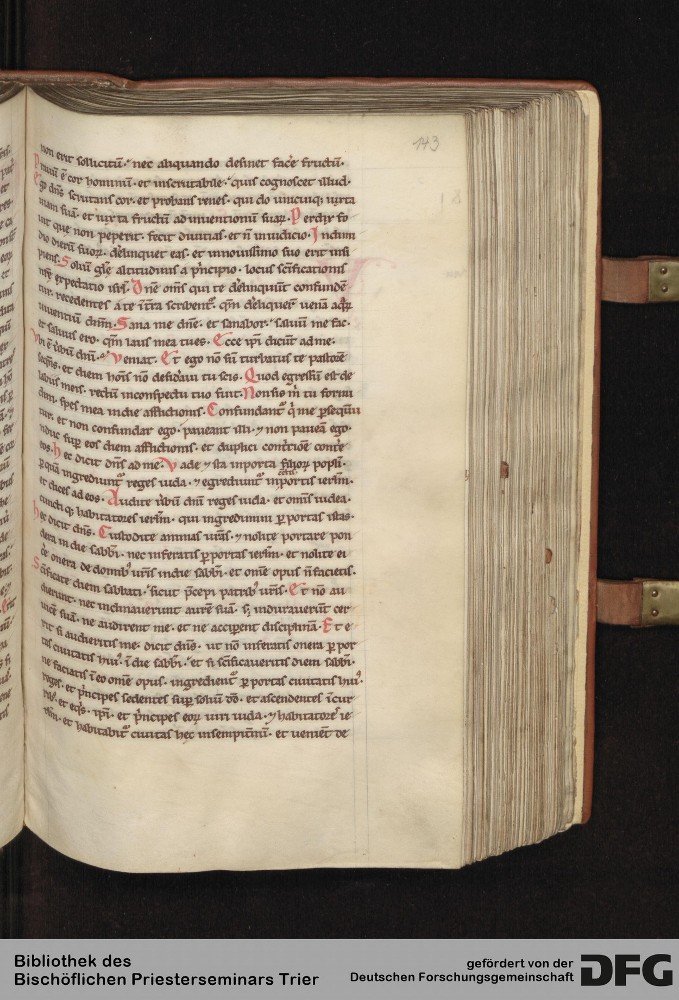 143
non erit sollicitū· nec aliquando desinet facͤe fructū·
Prauū ē cor hominū· et inscrutabile· quis cognoscet illud·
Ego dn̄s scrutans cor· et probans renes· qui do unicuiq; iuxta
uiam suā· et iuxta fructū adinuentionū suaꝝ· Perdix fo
uit que non peperit· fecit diuitias· et n̄ iniudicio· Indimi
dio dierū suoꝝ· derelinquet eas· et innouissimo suo erit insi
piens· Soliū gl̄ie altitudinis a principio· locus sc̄ificationis
nr̄e expectatio isrl̄· Dn̄e om̄s qui te derelinquūt confundēt᷑
tur· recedentes a te ī tr̄a scribent᷑· qm̄ dereliquer̄ uenā aq̄ꝝ
uiuentiū dn̄m· Sana me dn̄e· et sanabor· saluū me fac·
et saluus ero· qm̄ laus mea tu es· Ecce ip̄i dicūt ad me·
Vbi ē uerbū dn̄i· ueniat· Et ego nō sū turbatus te pastorē
seq̄ns· et diem hōis nō desideraui tu scis· Quod egressū est de
labiis meis· rectū inconspectu tuo fuit· Nonsis m̄ tu formi
dini· spes mea indie afflictionis· Confundant᷑ q̄ me ꝑsequū
tur· et non confundar ego· paueant illi· ⁊ non paueā ego·
Induc suꝑ eos diem afflictionis· et duplici contͥtiōe contͤe
eos· Hec dicit dn̄s ad me· Vade ⁊ sta inporta filioꝝ popl̄i·
ꝑ quā ingrediunt᷑ reges iuda· ⁊ egrediunt᷑ inportis ierlm̄·
cͨtis
et dices ad eos· Audite uerbū dn̄i reges iuda· et omīs iudea·
cunctiq; habitatores ierlm̄· qui ingredimini ꝑ portas istas·
Hec dicit dn̄s· Custodite animas ur̄as· ⁊ nolite portare pon
dera in die sabb̄i· nec inferatis ꝑ portas ierlm̄· et nolite ei
cͤe onera de domib᷒ ur̄is indie sabb̄i· et omē opus n̄ facietis·
Sc̄ificate diem sabbati· sicut p̄cepi patrib᷒ ur̄is· Et nō au
dierunt· nec inclinauerunt aurē suā· s; indurauerūt cer
uicē suā· ne audirent me· et ne acciꝑent disciplinā· Et e
rit si audieritis me· dicit dn̄s· ut nō inferatis onera ꝑ por
tas ciuitatis hui᷒· ī die sabb̄i· et si sc̄ificaueritis diem sabb̄i·
ne faciatis ī eo omē opus· ingredient᷑ ꝑ portas ciuitatis hui᷒·
reges· et p̄ncipes sedentes suꝑ soliū dd̄· et ascendentes ī cur
rib᷒· et eqͥs· ip̄i· et p̄ncipes eoꝝ uiri iuda· ⁊ habitatores ie
rlm̄· et habitabit᷑ ciuitas hec insempit̄nū· et uenient de
Bibliothek des
Bischöflichen Priesterseminars Trier
gefördert von der
Deutschen Forschungsgemeinschaft
DFG